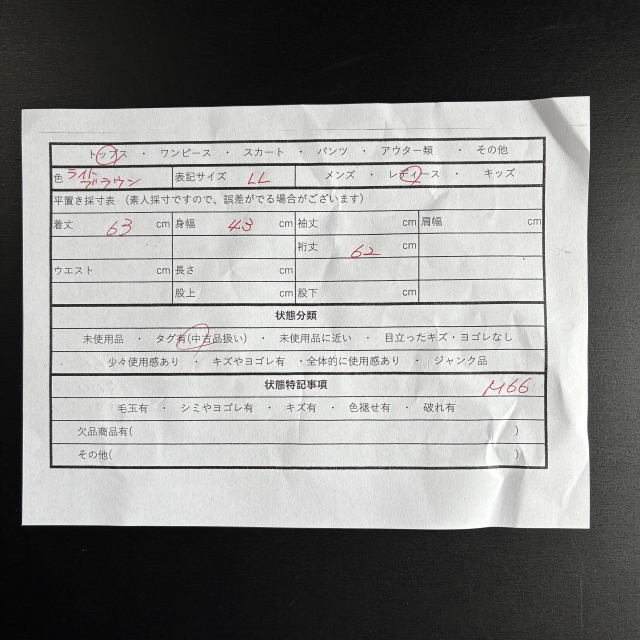 トップス ・ ワンピース ・ スカート ・ パンツ ・ アウター類 ・ その他
色 ライトブラウン 表記サイズ LL メンズ ・ レディース ・ キッズ
平置き採寸表 （素人採寸ですので、誤差がでる場合がございます）
着丈 63 cm 身幅 43 cm 袖丈 cm 肩幅 cm
裄丈 62 cm
ウエスト cm 長さ cm
股上 cm 股下 cm
状態分類
未使用品 ・ タグ有(中古品扱い) ・ 未使用品に近い ・ 目立ったキズ・ヨゴレなし
少々使用感あり ・ キズやヨゴレ有 ・全体的に使用感あり ・ ジャンク品
状態特記事項 M66
毛玉有 ・ シミやヨゴレ有 ・ キズ有 ・ 色褪せ有 ・ 破れ有
欠品商品有( )
その他( )